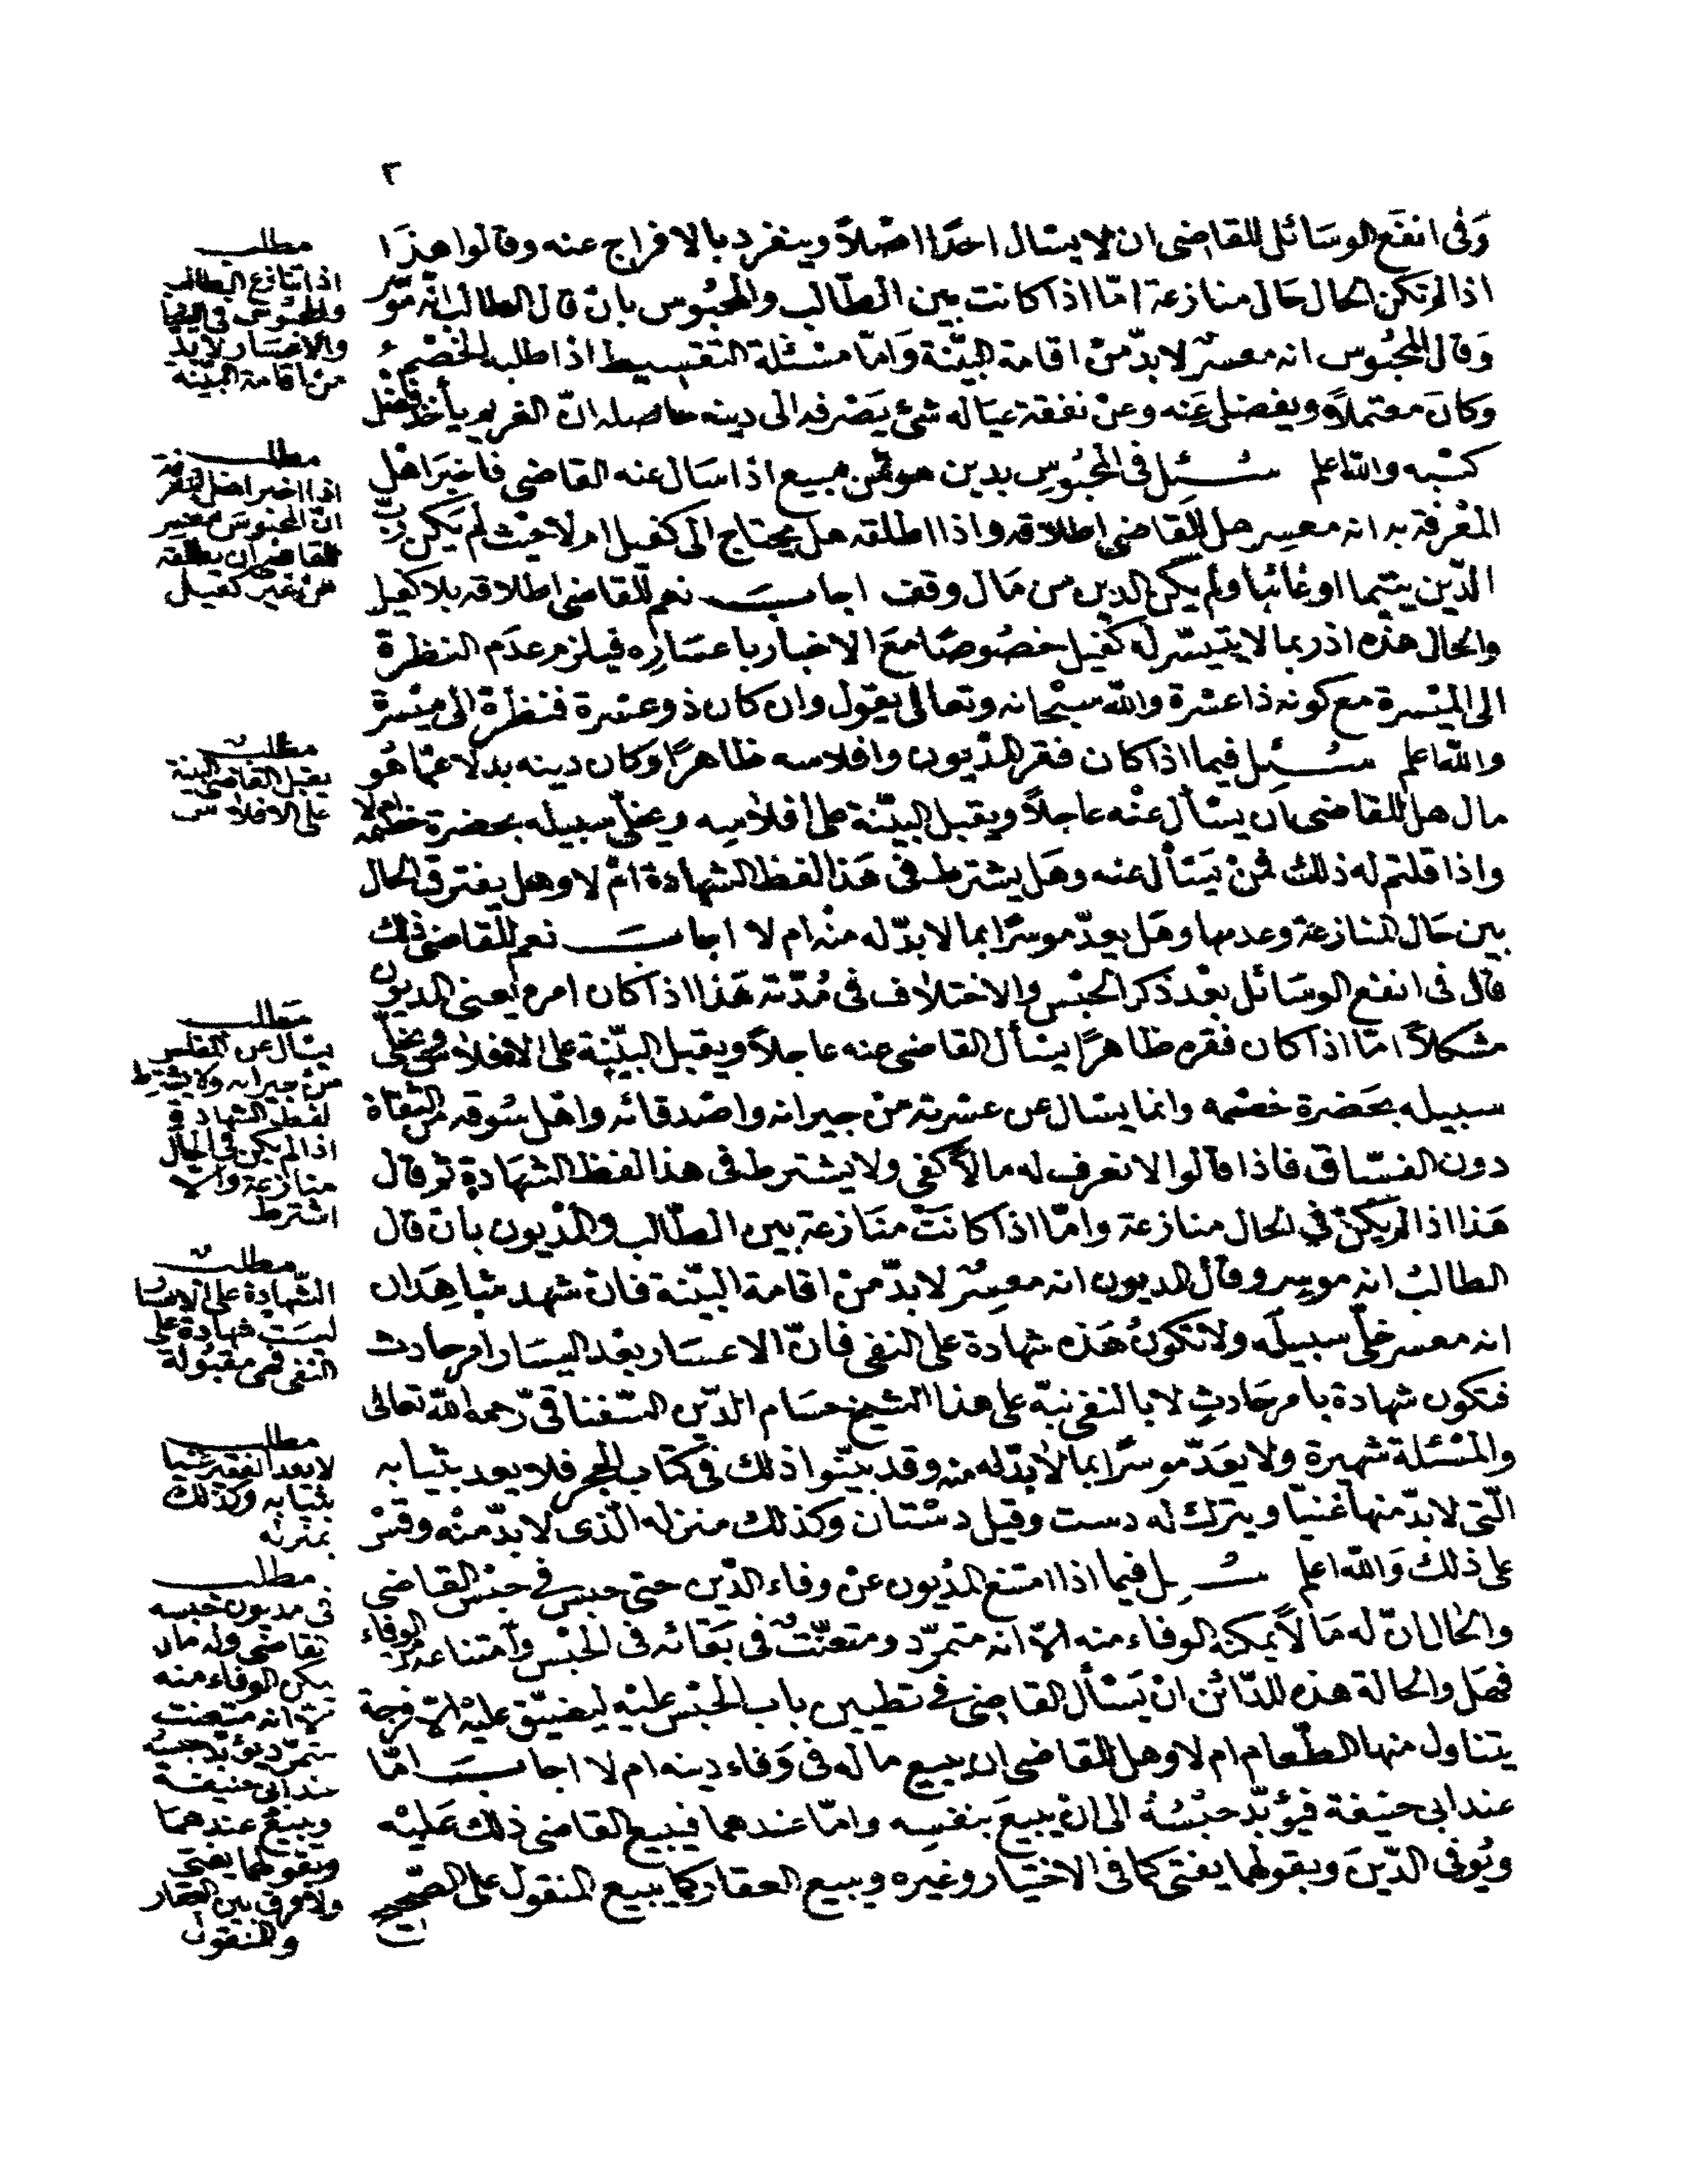 ٣
وفى انفع الوسائل للقاضى ان لا يسال احدا اصلا وينفرد بالافراج عنه وقالوا هذا
اذا لم تكن الحال حال منازعة امّا اذا كانت بين الطّالب والمحبُوس بان قال الطالب انّه موسر
وقال المحبُوس انه معسر لا بدّ من اقامة البيّنة وَامّا مسْئلة التقسيط اذا طلبه الخصْم
وكانَ معتملاً ويفضل عَنه وعن نفقة عيَاله شئ يَصْرفه الى دينه حاصله انّ الغريم يأخذ فاضل
كسْبه والله اعلم سئِل فى المحبُوس بدين هو ثمن مبيع اذا سَال عنه القاضى فاخبرَ اهْل
المعْرفة به انه معسِر هل للقاضى اطلاقه واذا اطلقه هل يحتاج الى كفيل ام لا حيث لم يكن ربّ
الدّين يتيما او غائبا ولم يكن الدين من مَال وقف اجابَ نعم للقاضى اطلاقه بلا كفيل
والحال هذه اذ ربما لا يتيسّر له كفيل خصُوصًا معَ الاخبار باعسَارِه فيلزم عدَم النظرة
الى الميْسرة مع كونه ذا عسْرة والله سبْحانه وتعالى يقول وان كان ذو عسْرة فنظرة الى ميْسرة
والله اعلم سئِل فيما اذا كان فقر المدْيون وافلاسه ظاهرًا وكان دينه بدلا عمّا هُو
مال هل للقاضى ان يسْأل عنْه عاجلاً ويقبل البيّنة على افلاسِه ويخلّى سبيله بحضرة خصْمه ام لا
واذا قلتم له ذلك فمَنْ يَسْأل عنه وهَل يشترط فى هَذا لفظ الشهادة امْ لا وهل يفترق الحال
بين حَال المنازعة وعدمها وهَل يعدّ موسَرًا بما لا بدّ له منْه ام لا اجابَ نعم للقاضى ذلك
قال فى انفع الوسَائل بعْد ذكر الحبْس والاختلاف فى مُدّته هَذا اذا كان امره يعنى المديون
مشكلاً امّا اذا كان فقره ظاهرًا يسْأل القاضى عنه عاجلاً ويقبل البيّنة على الافلاس ويخلّى
سبيله بحَضرة خصْمه وانما يسْال عن عسْرته من جيرانه واصْدقائه واهْل سُوقه من الثقاة
دون الفسّاق فاذا قالوا لا نعرف له مالاً كفى ولا يشترط فى هذا لفظ الشهَادة ثم قال
هَذا اذا لم يكن في الحال منازعة وامّا اذا كانَتْ منَازعة بين الطّالب والمدْيون بان قال
الطالبُ انه موسِر وقال المديون انه معسِر لا بدّ من اقامة البيّنة فان شهد شاهِدَان
انه معسر خلّى سبيلَه ولا تكونُ هَذه شهادة على النفى فانّ الاعسَار بعْد اليسَار امر حادث
فتكون شهادة بامر حَادثٍ لا بالنفى نبّه على هذا الشيخ حسَام الدّين السّغناقى رحمه الله تعالى
والمسْئلة شهيرة ولا يعَدّ موسَرًا بما لا بدّ له منه وقد بيّنوا ذلك فى كتاب الحجر فلا يعد بثيابه
الّتى لا بدّ منها غنيّا ويترك له دست وقيل دسْتان وكذلك منزله الّذى لا بدّ منْه وقسْ
على ذلك وَالله اعلم سُئِل فيما اذا امتنع المدْيون عنْ وفاء الدّين حتى حبس في حبْس القاضى
والحال انّ له مَالاً يمكنه الوفاء منه الاّ انه متمرّد ومتعنّتٌ فى بَقائه فى الحبْس وامتناعه من الوفاء
فهَل والحالة هذه للدّائن انْ يَسْأل القاضى في تطيين باب الحبْس عليْه ليضيّق عليْه الاّ فرجة
يتناول منها الطّعام ام لا وهل للقاضى ان يبيع ماله فى وَفاء دينه ام لا اجابَ امّا
عند ابى حنيفة فيؤبّد حبْسُهُ الى ان يبيعَ بنفسِه وامّا عندهما فيبيع القاضى ذلك عَليْه
ويُوفى الدّينَ وبقولهما يفتى كما فى الاختيَار وغيره ويبيع العقار كما يبيع المنقول على الصّحيح
مطلب
اذا تنازع الطالب
والمحبُوس فى اليسَار
والاعسَار لا بدّ
من اقامة البيّنه
مطلب
اذا اخبر اهل المعْرفة
انّ المحبُوسَ معْسِر
للقاضى ان يطلقه
من غير كفيل
مطلب
يقبل القاضى البينة
على الافلاس
مطلب
يسْأل عن المفلس
من جيرانه ولا يشترط
لفظ الشهادة
اذا لم يكن فى الحال
منازعة والاّ
اشترط
مطلب
الشّهادة على الاعسار
ليسَت شهادة على
النفى فهى مقبُولة
مطلب
لا يعد الفقير غنيا
بثيابه وكذلك
بمنزله
مطلب
فى مديون حبسه
القاضى وله مال
يمكن الوفاء منه
الاّ انه متعنت
متمرّد يؤبّد حبسُه
عند ابى حنيفة
ويبيع عندهمَا
وبقولهما يفتى
ولا فرق بين العقار
والمنقول